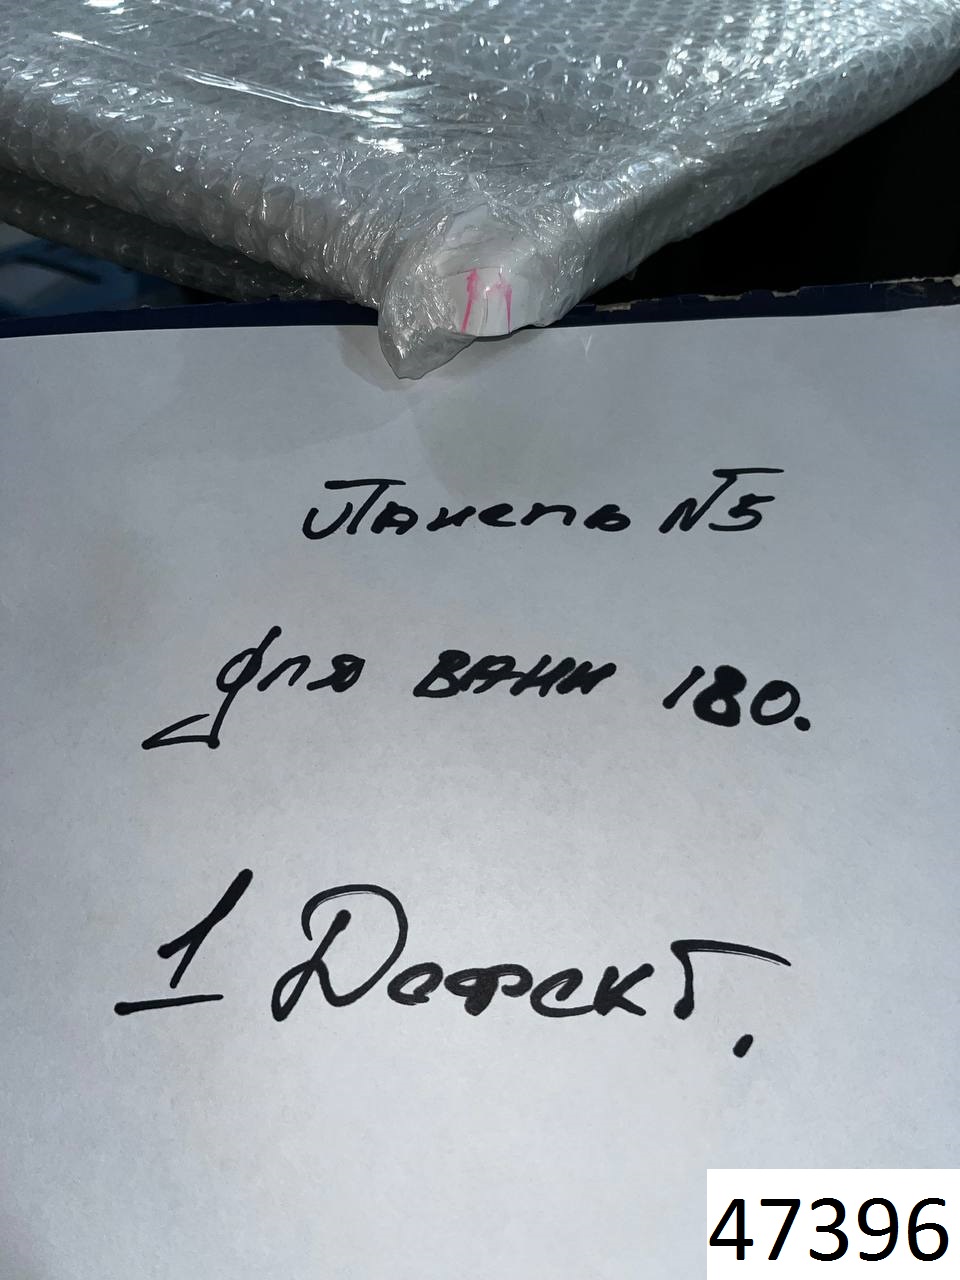 Панель N5
для ванн 180.
1 Дефект.
47396